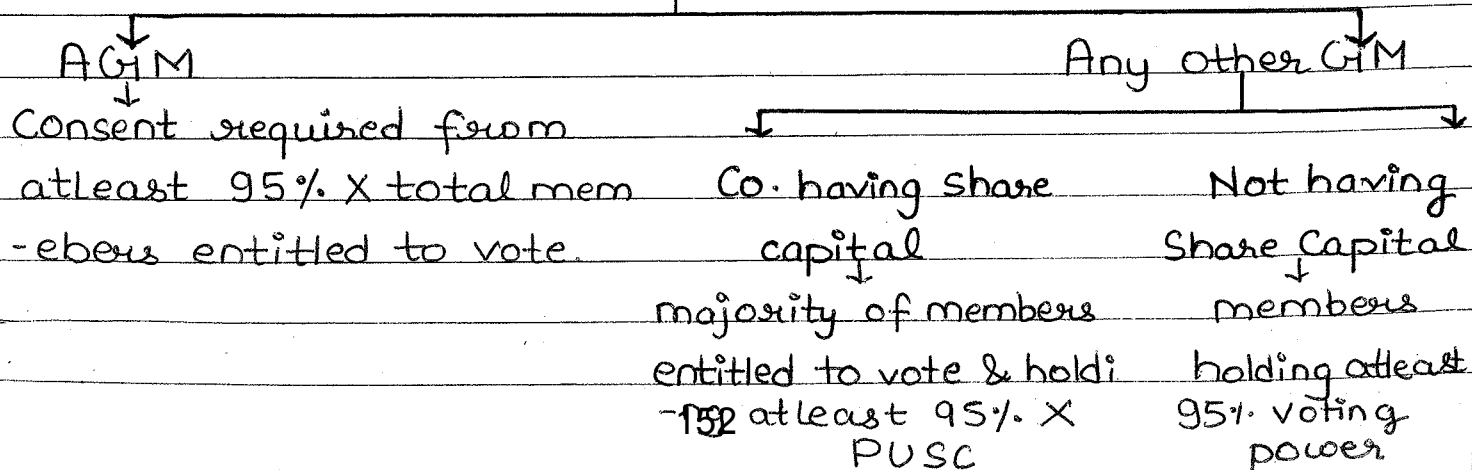 AGM
Any other GM
Consent required from
atleast 95% X total mem
-ebers entitled to vote.
Co. having Share
capital
majority of members
entitled to vote & holdi
-ng atleast 95% X
PUSC
Not having
Share Capital
members
holding atleast
95% voting
power
152